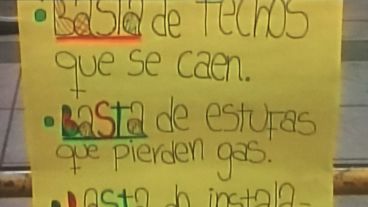 • Basta de techos
que se caen.
• Basta de estufas
que pierden gas.
• Basta de instala-